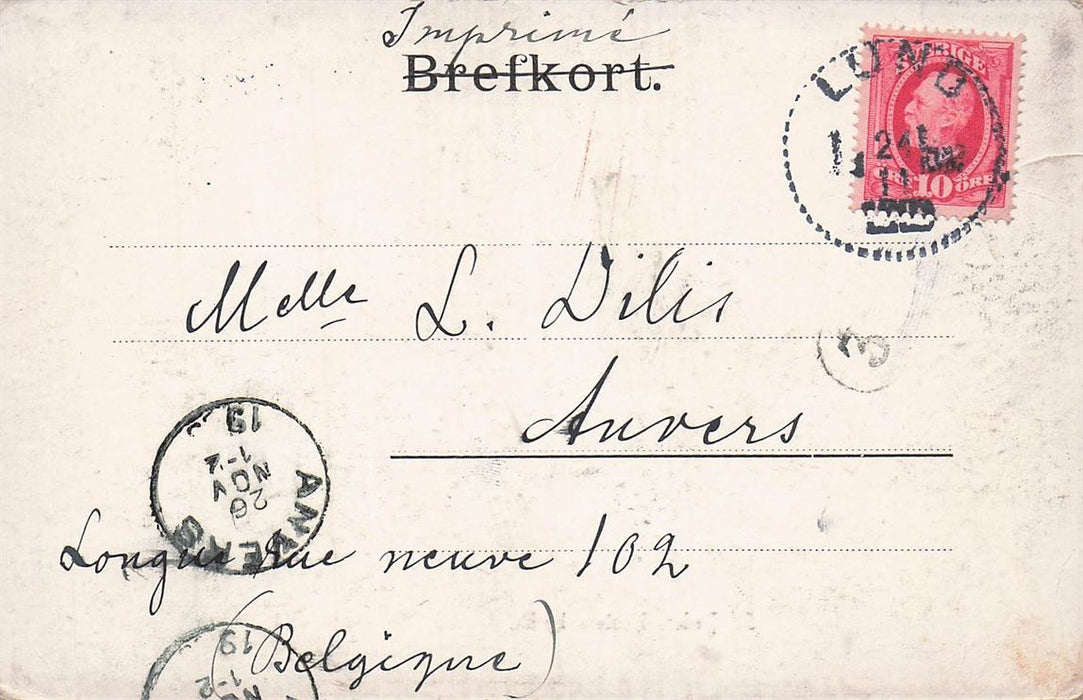 Imprimé
Brefkort.
LUND
24
11
SVERIGE
ÖRE 10 ÖRE
Melle L. Dilis
3
Anvers
ANVERS
26
NOV
1-2
19
Longue rue neuve 102
(Belgique)
19
1-2